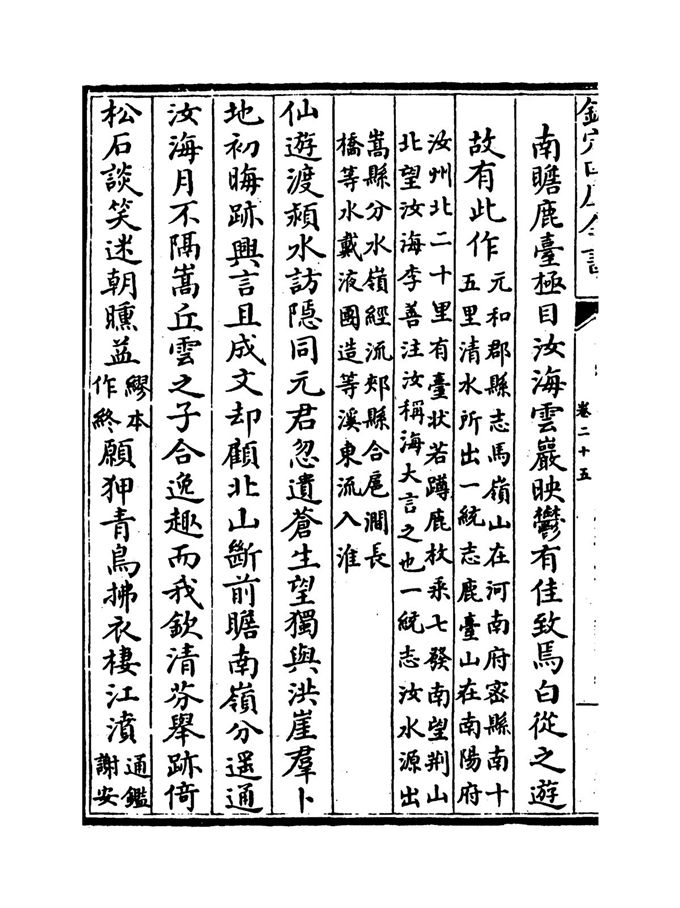 欽定四庫全書
卷二十五
南瞻鹿臺極目汝海雲巖映鬱有佳致焉白從之遊
故有此作
元和郡縣志馬嶺山在河南府密縣南十
五里清水所出一統志鹿臺山在南陽府
汝州北二十里有臺狀若蹲鹿枚乘七發南望荆山
北望汝海李善注汝稱海大言之也一統志汝水源出
嵩縣分水嶺經流郟縣合扈澗長
橋等水戴液國造等溪東流入淮
仙遊渡潁水訪隱同元君忽遺蒼生望獨與洪崖羣卜
地初晦跡興言且成文却顧北山斷前瞻南嶺分遥通
汝海月不隔嵩丘雲之子合逸趣而我欽清芬舉跡倚
松石談笑迷朝曛益
繆本
作終
願狎青鳥拂衣棲江濆
通鑑
謝安